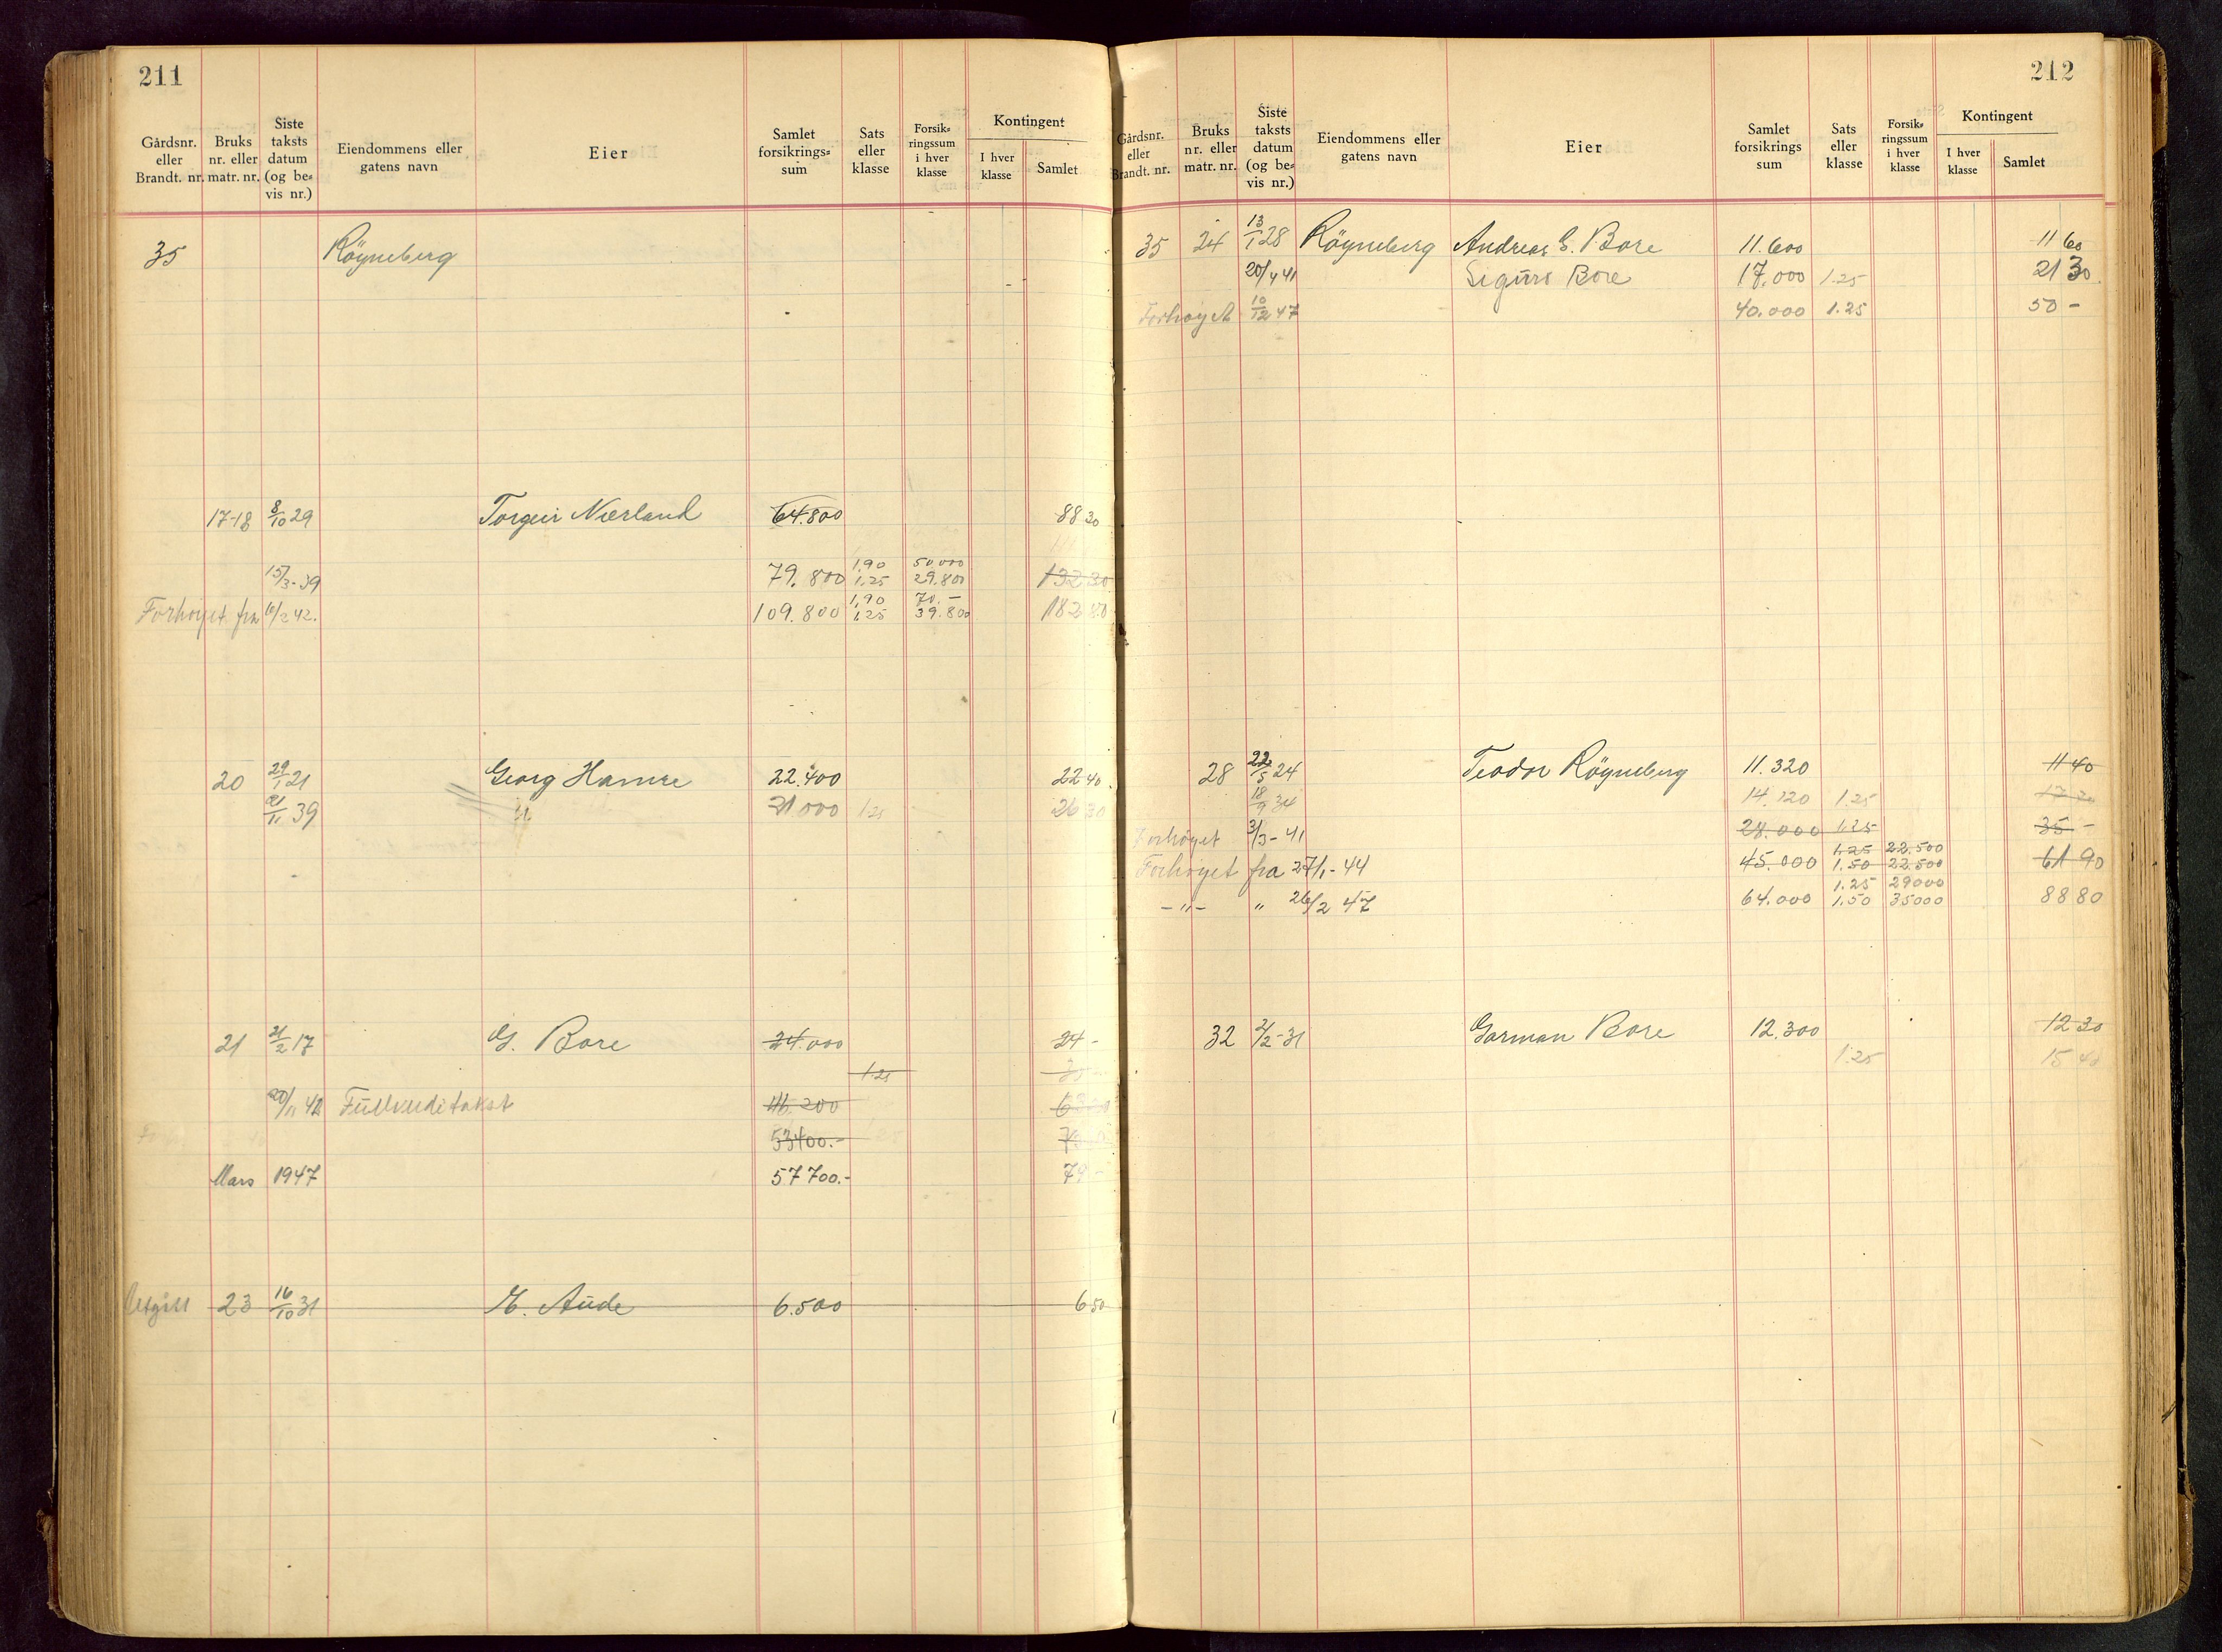 211
Gårdsnr. eller Brandt. nr. Bruks nr. eller matr. nr. Siste taksts datum (og bevis nr.) Eiendommens eller gatens navn Eier Samlet forsikrings=sum Sats eller klasse Forsik=ringssum i hver klasse Kontingent I hver klasse Samlet
35 Röyneberg
17-18 8/10 29 Torgeir Nærland 64.800 88 30
15/3-39 79.800 1,90 50000 132 30
1,25 29.800
Forhöyet fra 10/2 42. 109.800 1,90 70.- 182
1,25 39.800
20 29/1 21 Georg Hamre 22.400 22 40
21/11 39 21000 1.25 26 30
21 21/2 17 G. Bore 24.000 24 -
1.25
20/11 42 Fullverditakst 46.200
53400.-
Mars 1947 57700.- 79 -
Utgått 23 16/10 31 E. Aude 6.500 6 50
212
Gårdsnr. eller Brandt. nr. Bruks nr. eller matr. nr. Siste taksts datum (og be=vis nr.) Eiendommens eller gatens navn Eier Samlet forsikrings sum Sats eller klasse Forsik=ringssum i hver klasse Kontingent I hver klasse Samlet
35 24 13/1 28 Röyneberg Andreas G. Bore 11.600 11 60
20/4 41 Sigurd Bore 17.000 1.25 21 30
Forhøyet 10/12 47 40.000 1.25 50 -
28 22/5 24 Teodor Röyneberg 11.320 11 40
18/9 34 14.120 1.25 17 70
Forhöyet 3/3-41 28.000 1.25 35 -
1.25 22.500
Forhöyet fra 27/1-44 45.000 1.50 22.500 61 90
1.25 29000
-"- " 26/2 47 64.000 1.50 35000 88 80
32 2/2-31 Garman Bore 12.300 12 30
1.25 15 40